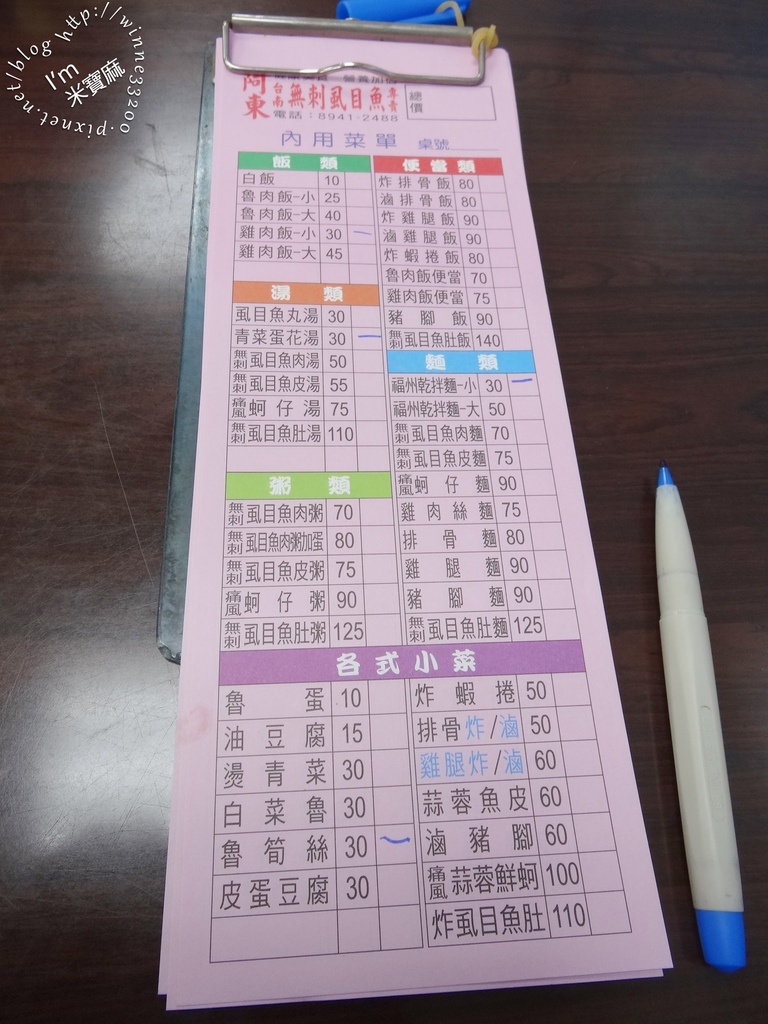 http://winne33200.pixnet.net/blog
I'm
米寶麻
阿東
台南無刺虱目魚專賣
電話：8941-2488
總價
內用菜單 桌號
飯類
白飯 10
魯肉飯-小 25
魯肉飯-大 40
雞肉飯-小 30 一
雞肉飯-大 45
湯類
虱目魚丸湯 30
青菜蛋花湯 30 一
無刺虱目魚肉湯 50
無刺虱目魚皮湯 55
痛風蚵仔湯 75
無刺虱目魚肚湯 110
粥類
無刺虱目魚肉粥 70
無刺虱目魚肉粥加蛋 80
無刺虱目魚皮粥 75
痛風蚵仔粥 90
無刺虱目魚肚粥 125
便當類
炸排骨飯 80
滷排骨飯 80
炸雞腿飯 90
滷雞腿飯 90
炸蝦捲飯 80
魯肉飯便當 70
雞肉飯便當 75
豬腳飯 90
無刺虱目魚肚飯 140
麵類
福州乾拌麵-小 30 一
福州乾拌麵-大 50
無刺虱目魚肉麵 70
無刺虱目魚皮麵 75
痛風蚵仔麵 90
雞肉絲麵 75
排骨麵 80
雞腿麵 90
豬腳麵 90
無刺虱目魚肚麵 125
各式小菜
魯蛋 10
油豆腐 15
燙青菜 30
白菜魯 30
魯筍絲 30 一
皮蛋豆腐 30
炸蝦捲 50
排骨炸/滷 50
雞腿炸/滷 60
蒜蓉魚皮 60
滷豬腳 60
痛風蒜蓉鮮蚵 100
炸虱目魚肚 110